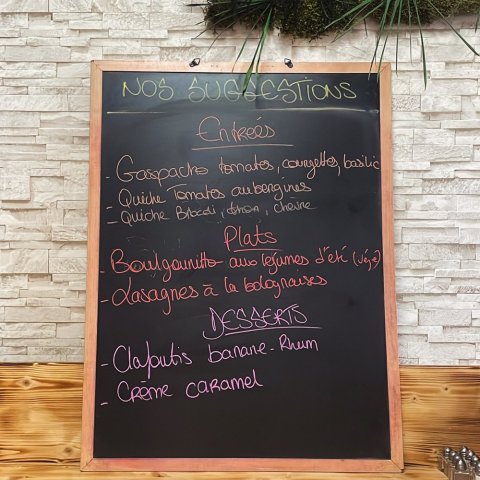 NOS SUGGESTIONS
Entrées
- Gaspacho tomates, courgettes, basilic
- Quiche Tomates aubergines
- Quiche Brocoli, , chèvre
Plats
- Boulgounotto aux légumes d'été (végé)
- Lasagnes à la bolognaises
DESSERTS
- Clafoutis banane-Rhum
- Crème caramel